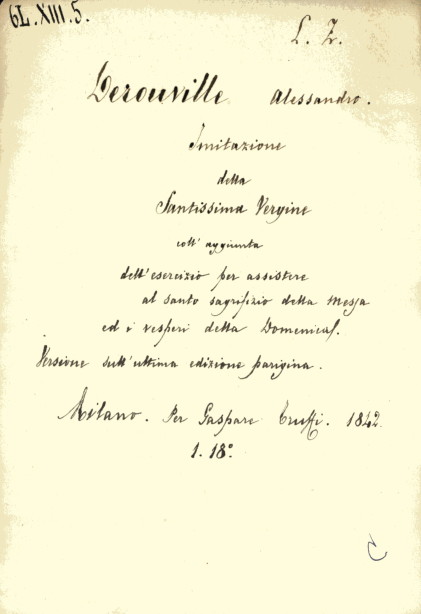 6L.XIII.5.
L. Z.
Derouville Alessandro.
Imitazione
della
Santissima Vergine
coll' aggiunta
dell'esercizio per assistere
al santo sagrifizio della Messa
ed i vesperi della Domenica.
Versione sull'ultima edizione parigina.
Milano. Per Gaspare Truffi. 1842.
1. 18°.
C